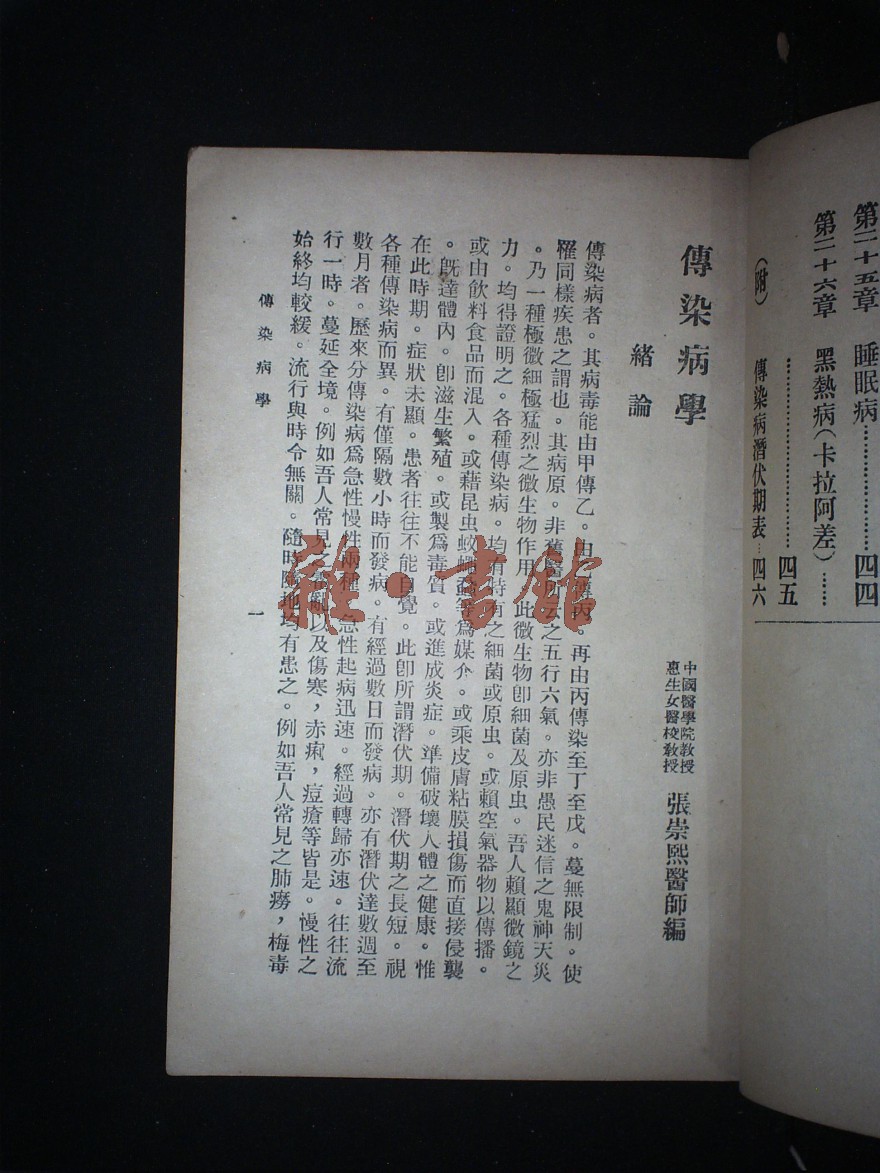 第二十五章 睡眠病………………四四
第二十六章 黑熱病(卡拉阿差)……
………………………四五
(附) 傳染病潛伏期表…四六
傳染病學
中國醫學院教授
惠生女醫校教授
張崇熙醫師編
緒論
傳染病者。其病毒能由甲傳乙。由乙傳丙。再由丙傳染至丁至戊。蔓無限制。使
罹同樣疾患之謂也。其病原。非舊醫所云之五行六氣。亦非愚民迷信之鬼神天災
。乃一種極微細極猛烈之微生物作用。此微生物卽細菌及原虫。吾人賴顯微鏡之
力。均得證明之。各種傳染病。均有特有之細菌或原虫。或賴空氣器物以傳播。
或由飲料食品而混入。或藉昆虫蚊蠅蚤等爲媒介。或乘皮膚粘膜損傷而直接侵襲
。旣達體內。卽滋生繁殖。或製爲毒質。或進成炎症。準備破壞人體之健康。惟
在此時期。症狀未顯。患者往往不能自覺。此卽所謂潛伏期。潛伏期之長短。視
各種傳染病而異。有僅隔數小時而發病。有經過數日而發病。亦有潛伏達數週至
數月者。歷來分傳染病爲急性慢性兩種。急性起病迅速。經過轉歸亦速。往往流
行一時。蔓延全境。例如吾人常見之霍亂以及傷寒，赤痢，痘瘡等皆是。慢性之
始終均較緩。流行與時令無關。隨時隨地均有患之。例如吾人常見之肺癆，梅毒
傳染病學
一
雜·書館